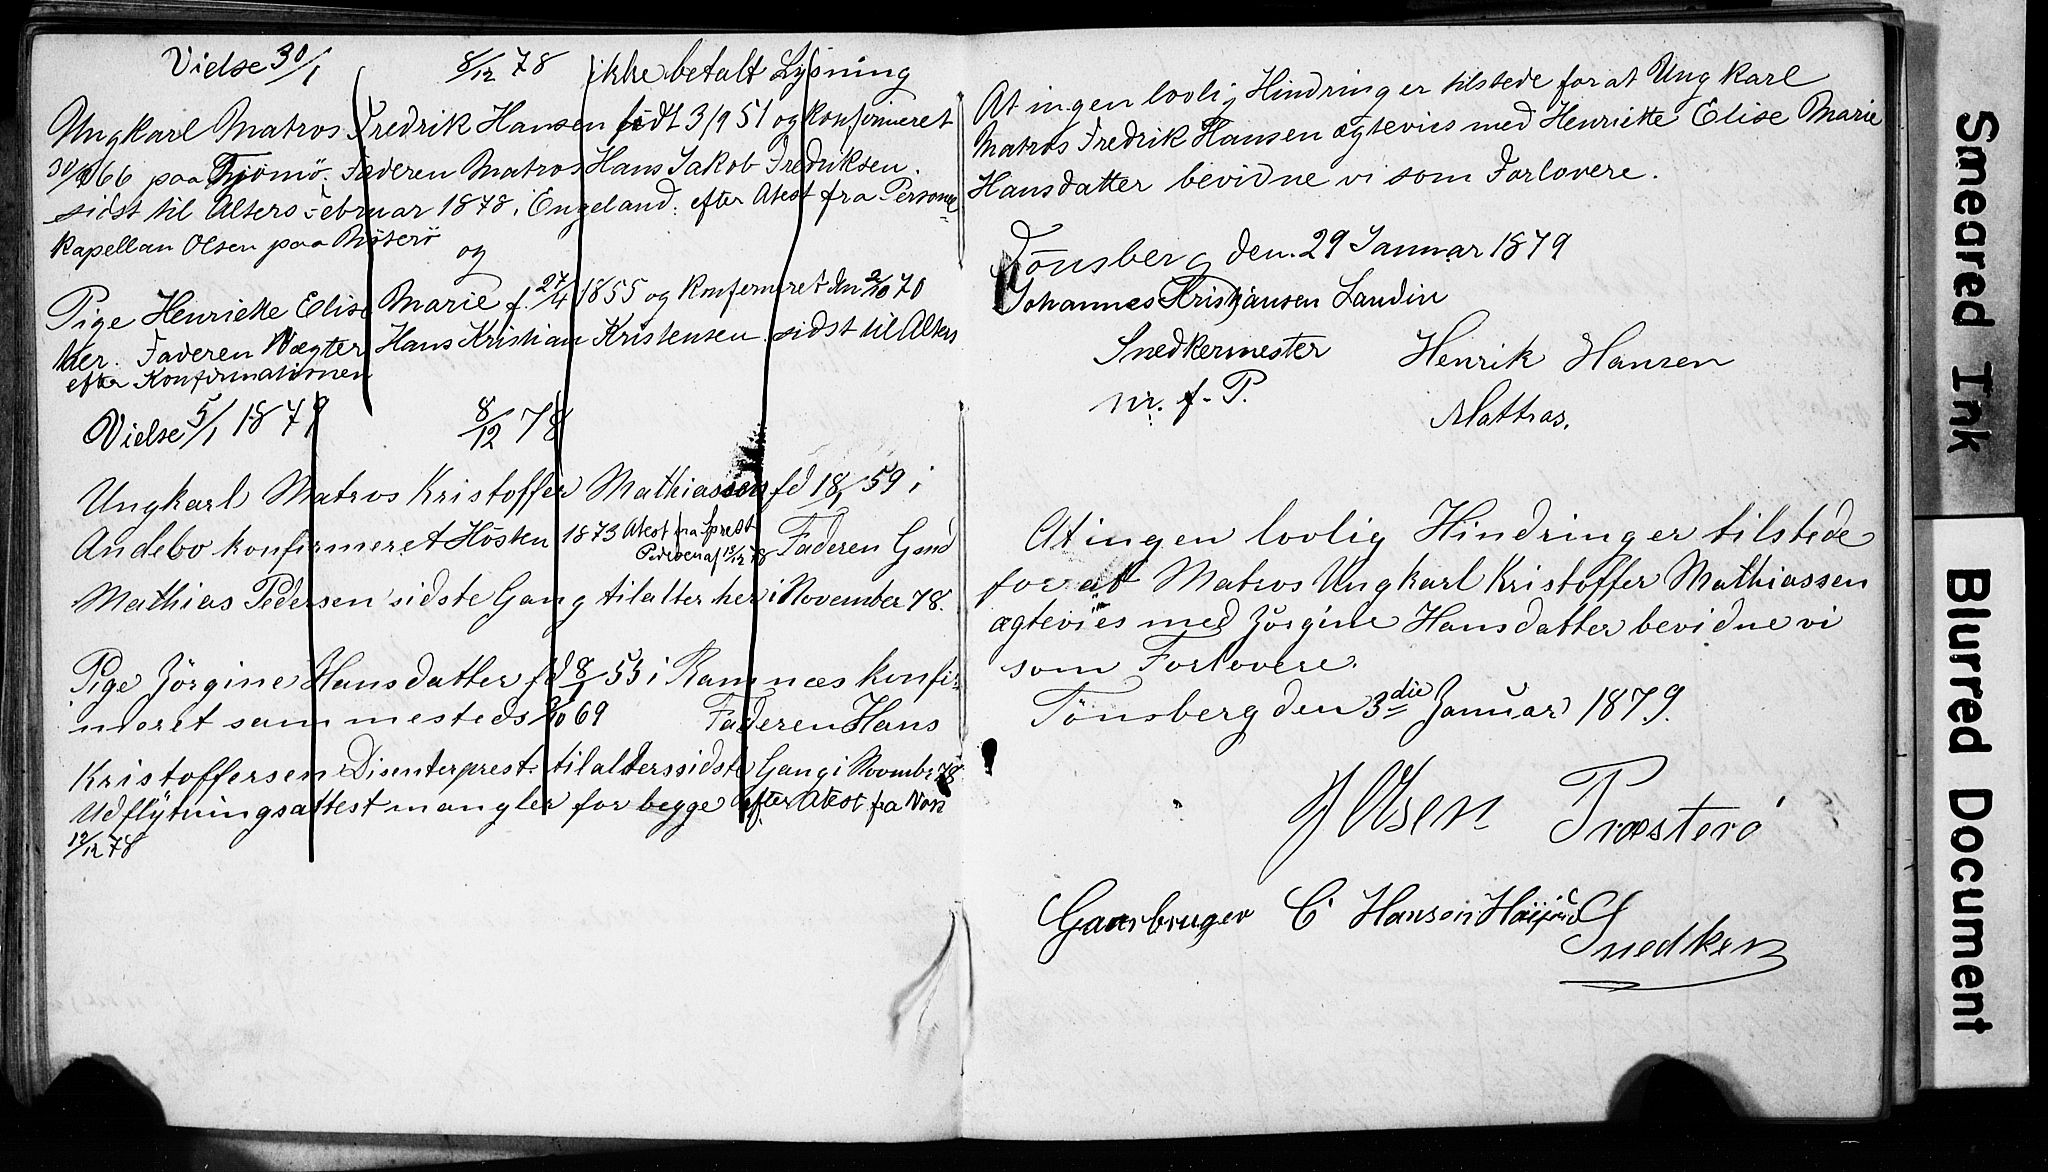 Vielse 30/1 8/12 78 ikke betalt Lysning
Ungkarl Matros Fredrik Hansen født 3/9 51 og konfirmeret
30/9 66 paa Tjømø. Faderen Matros Hans Jakob Fredriksen.
sidst til Alters Februar 1878 i Engeland. efter Atest fra Personel
kapellan Olsen paa
og
Pige Henriette Elise Marie f. 27/4 1855 og konfermeret den 2/10 70
her. Faderen Vægter Hans Kristian Kristensen sidst til Alters
efter Konfirmationen
Vielse 5/1 1879 8/12 78
Ungkarl Matros Kristoffer Mathiassen fd 18/1 59 i
Andebo konfirmeret Hösten 1873 Atest fra Sprest
Pedersen af 13/12 78 Faderen Gmd
Mathias Pedersen sidste Gang tilalter her i November 78.
Pige Jörgine Hansdatter fd 8/1 53 i Ramnæs konfir-
meret sammesteds 3/10 69 Faderen Hans
Kristoffersen Disenterprest tilalters sidste Gang i Novembr 78
Udflytningsattest mangler for begge efter Atest fra
12/12 78
At ingen lovlig Hindring er tilstede for at Ungkarl
Matros Fredrik Hansen ægtevies med Henriette Elise Marie
Hansdatter bevidne vi som Forlovere.
Tönsberg den 29 Januar 1879
Johannes Kristjansen Landin
Snedkermester Henrik Hansen
m. f. P. Mattros.
At ingen lovlig Hindring er tilstede
for at Matros Ungkarl Kristoffer Mathiassen
ægtevies med Jörgine Hansdatter bevidne vi
som Forlovere.
Tönsberg den 3die Januar 1879.
J Olsen Præsterö
Gaarbruger C Hansen Snedker
Smeared Ink
Blurred Document